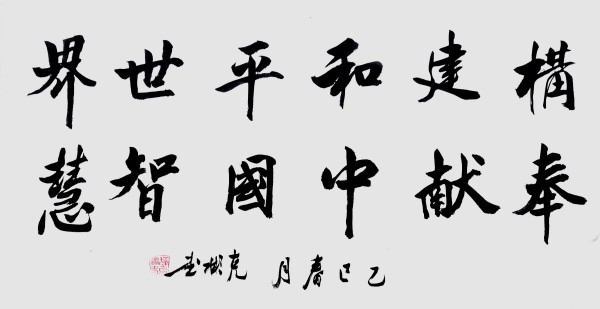 構建和平世界
奉献中國智慧
乙巳春月